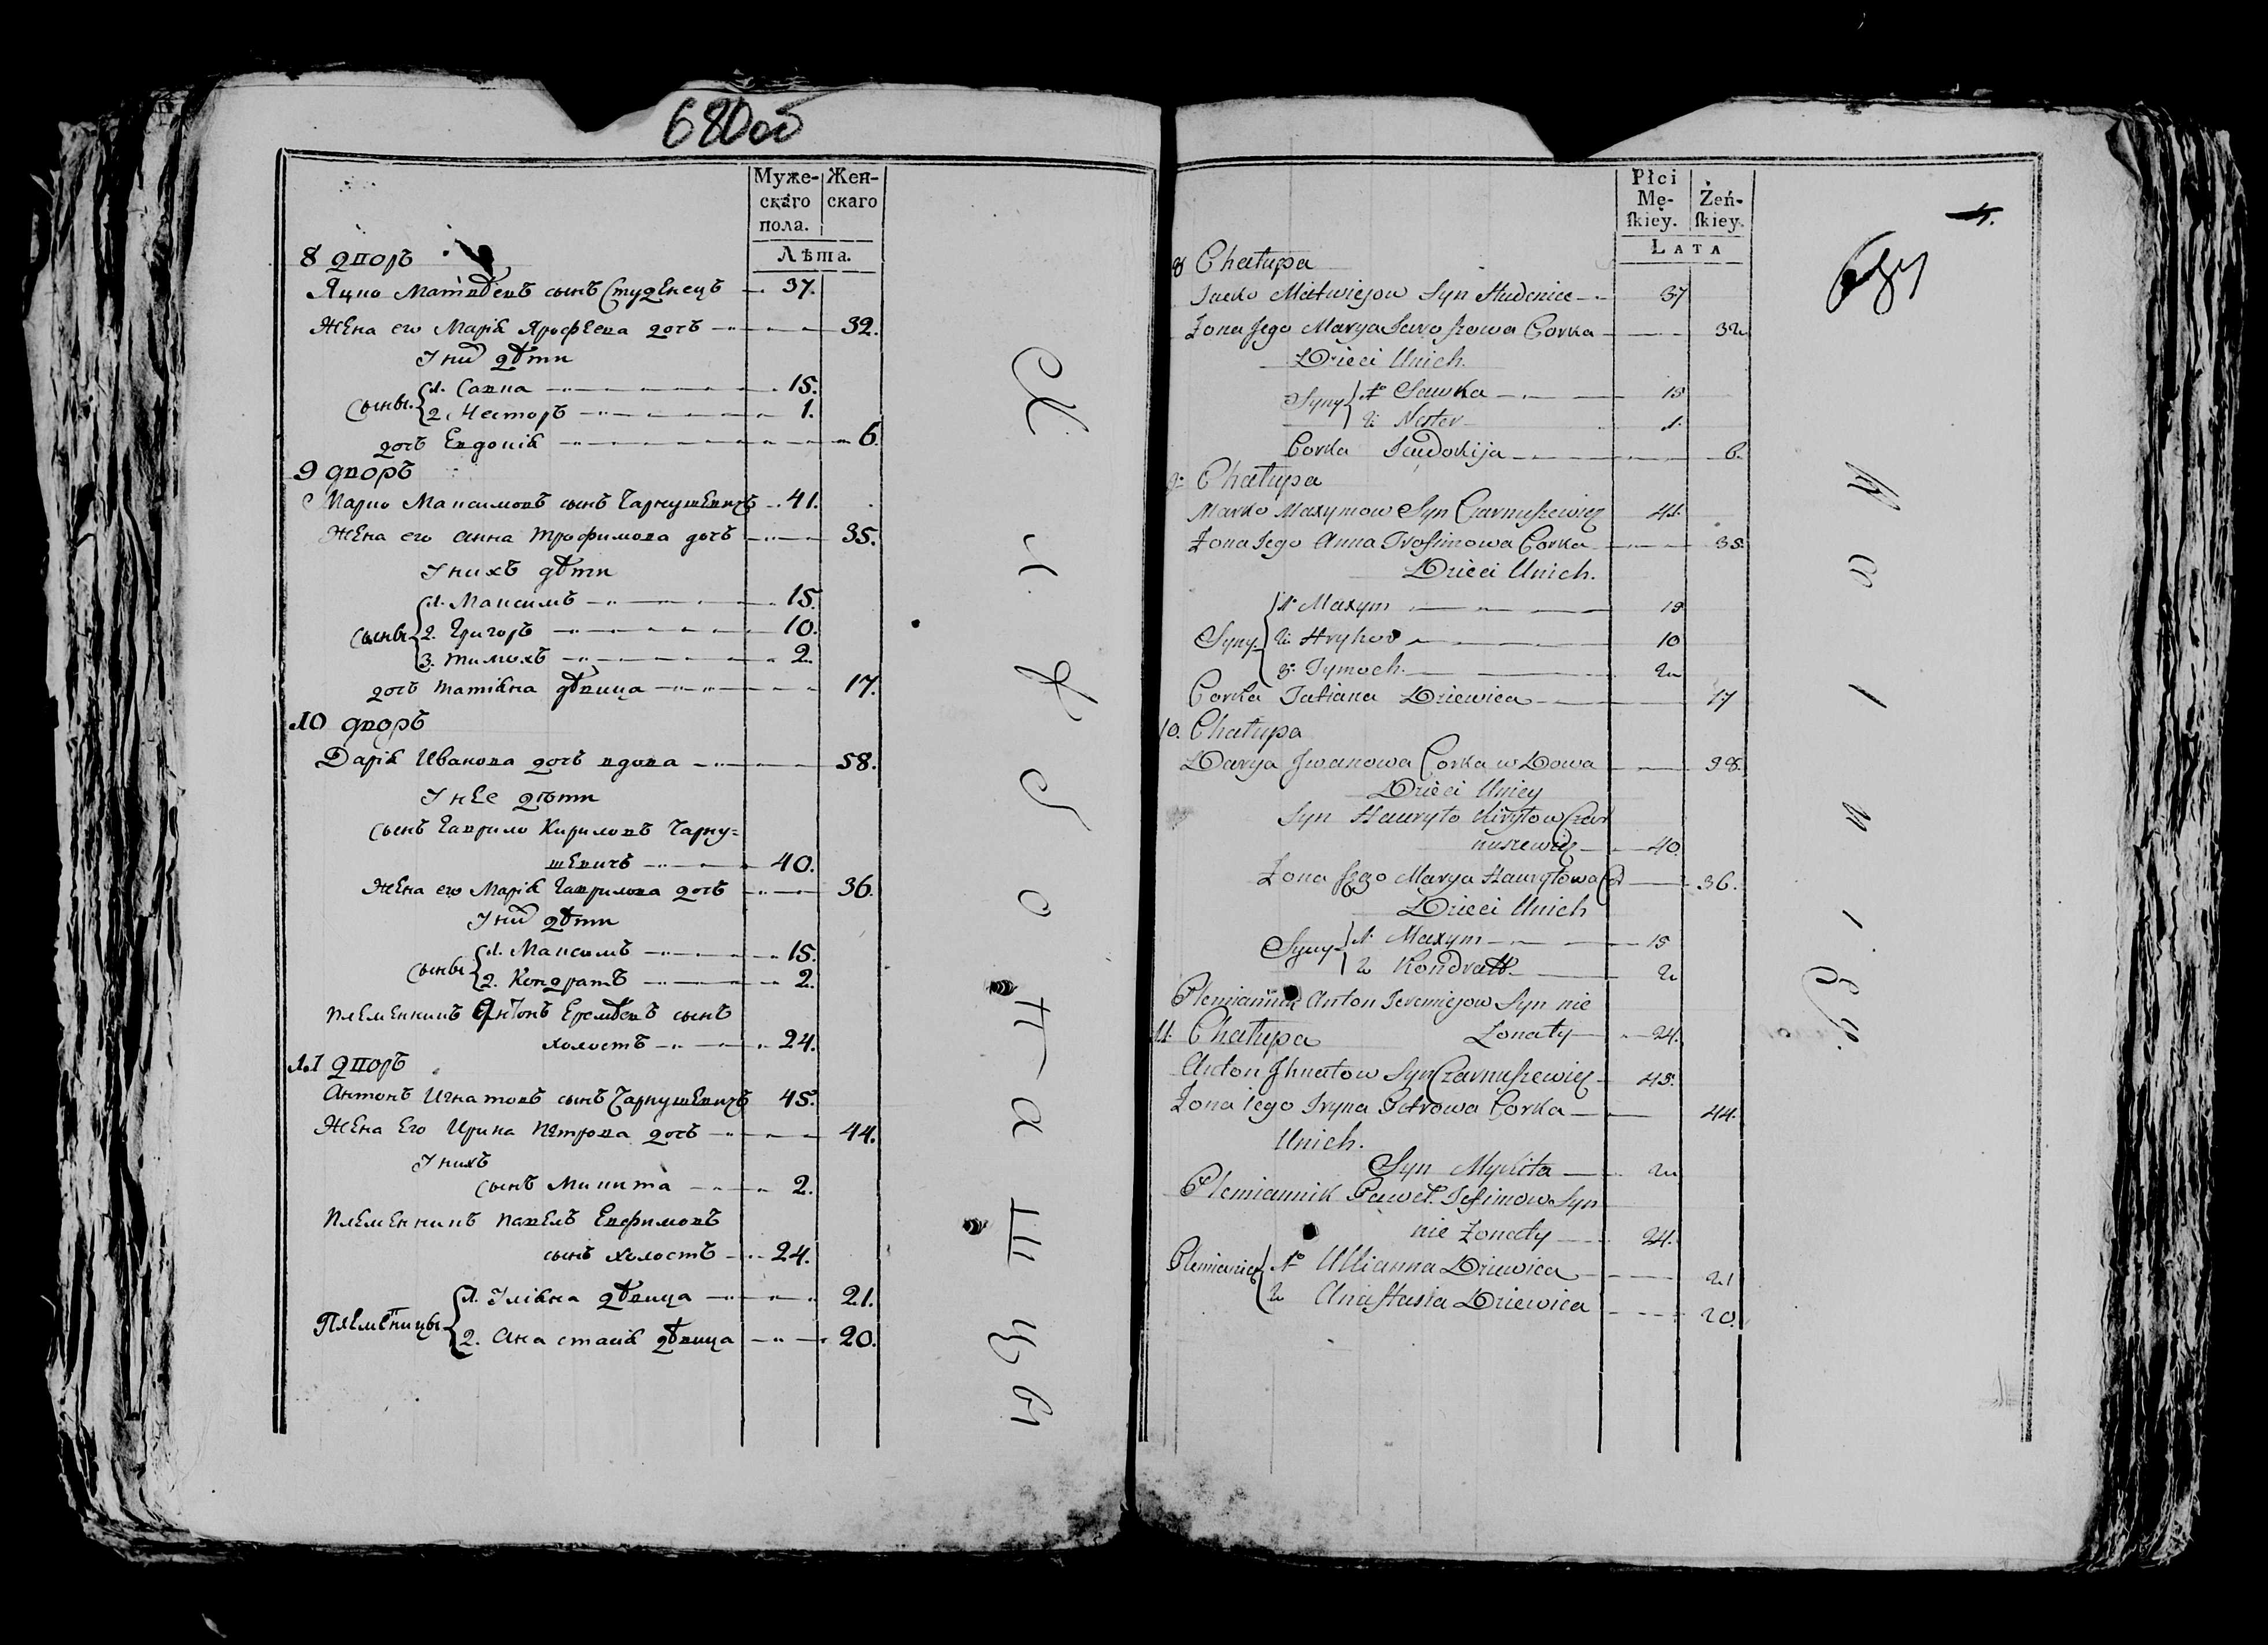 680об
Муже- Жен-
скаго скаго
пола.
Лѣта.
8 дворъ
Яцко Матвѣевъ сынъ Студенецъ 37.
Жена его Марія Ярофѣева дочь 32.
У них дѣти
Сыны. 1. Савка 15.
2. Несторъ 1.
дочь Евдокія 6.
9 дворъ
Марко Максимовъ сынъ Чарнушевичъ 41.
Жена его Анна Трофимова дочь 35.
У нихъ дѣти
Сыны 1. Максимъ 15.
2. Григоръ 10.
3. Тимохъ 2.
дочь Татіяна дѣвица 17.
10 дворъ
Дарія Иванова дочь вдова 58.
У нее дѣти
Сынъ Гаврило Кириловъ Чарну=
шевичъ 40.
Жена его Марія Гаврилова дочь 36.
У них дѣти
Сыны 1. Максимъ 15.
2. Кондратъ 2.
Племенникъ Антонъ Еремѣевъ сынъ
холостъ 24.
11 дворъ
Антонъ Игнатовъ сынъ Чарнушевичъ 45.
Жена Его Ирина Петрова дочь 44.
У нихъ
Сынъ Микита 2.
Племенникъ Павелъ Евфимовъ
сынъ холостъ 24.
Племеницы 1. Уліяна дѣвица 21.
2. Анастасія дѣвица 20.
Płci
Mę- Żeń-
ſkiey. ſkiey.
LATA
4.
8 Chałupa
Jacko Matwiejow Syn Studeniec 37
Żona Jego Marya Jaroszowa Corka 32
Dzieci Unich.
Syny 1o Sawka 15
2: Nester 1.
Corka Jeudokija 6.
9: Chałupa
Marko Maxymow Syn Czarnuszewicz 41.
Żona Jego Anna Trofimowa Corka 35.
Dzieci Unich.
Syny 1o Maxym 15
2: Hryhor 10
3: Tymoch. 2
Corka Tatiana Dziewica 17
10. Chałupa
Darya Jwanowa Corka wdowa 58.
Dzieci Uniey
Syn Hawryło Kiryłow Czar
nuszewicz 40.
Żona Jego Marya Hawryłowa C 36.
Dzieci Unich
Syny 1. Maxym 15
2 Kondratt 2
Plemiannik Anton Jeremiejow Syn nie
11. Chałupa Żonaty 24.
Anton Jhnatow Syn Czarnuszewicz 45.
Żona iego Iryna Petrowa Corka 44.
Unich.
Syn Mykita 2
Plemiannik Paweł Jefimow Syn
nie Żonaty 24.
Plemianice 1o Ullianna Dziewica 21
2 Anastasia Dziewica 20.